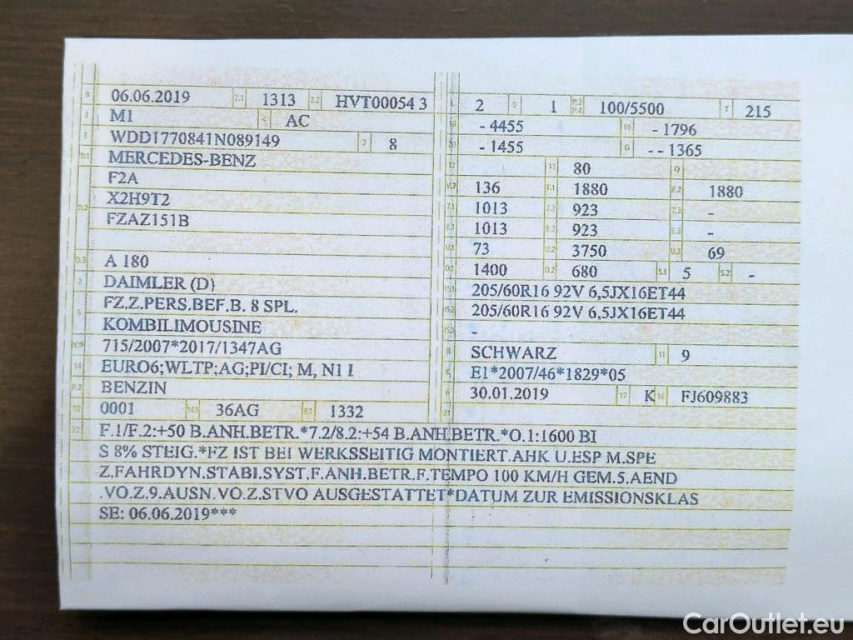 B 06.06.2019 2.1 1313 2.2 HVT00054 3
J M1 4 AC
E WDD1770841N089149 3 8
D.1 MERCEDES-BENZ
F2A
D.2 X2H9T2
FZAZ151B
D.3 A 180
2 DAIMLER (D)
5 FZ.Z.PERS.BEF.B. 8 SPL.
KOMBILIMOUSINE
V.9 715/2007*2017/1347AG
14 EURO6;WLTP;AG;PI/CI; M, N1 I
P.3 BENZIN
10 0001 14.1 36AG P.1 1332
L 2 9 1 P.2 P.4 100/5500 T 215
18 - 4455 19 - 1796
20 - 1455 G - - 1365
12 13 80 Q
V.7 136 F.1 1880 F.2 1880
7.1 1013 7.2 923 7.3 -
8.1 1013 8.2 923 8.3 -
U.1 73 U.2 3750 U.3 69
O.1 1400 O.2 680 S.1 5 S.2 -
15.1 205/60R16 92V 6,5JX16ET44
15.2 205/60R16 92V 6,5JX16ET44
15.3 -
R SCHWARZ 11 9
K E1*2007/46*1829*05
6 30.01.2019 17 K 16 FJ609883
21
22 F.1/F.2:+50 B.ANH.BETR.*7.2/8.2:+54 B.ANH.BETR.*O.1:1600 BI
S 8% STEIG.*FZ IST BEI WERKSSEITIG MONTIERT.AHK U.ESP M.SPE
Z.FAHRDYN.STABI.SYST.F.ANH.BETR.F.TEMPO 100 KM/H GEM.5.AEND
.VO.Z.9.AUSN.VO.Z.STVO AUSGESTATTET*DATUM ZUR EMISSIONSKLAS
SE: 06.06.2019***
CarOutlet.eu